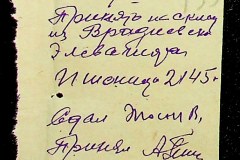 Принять на склад
из Врадиевско
Элеватора
Пшеница 2145 кг
Сдал
Принял